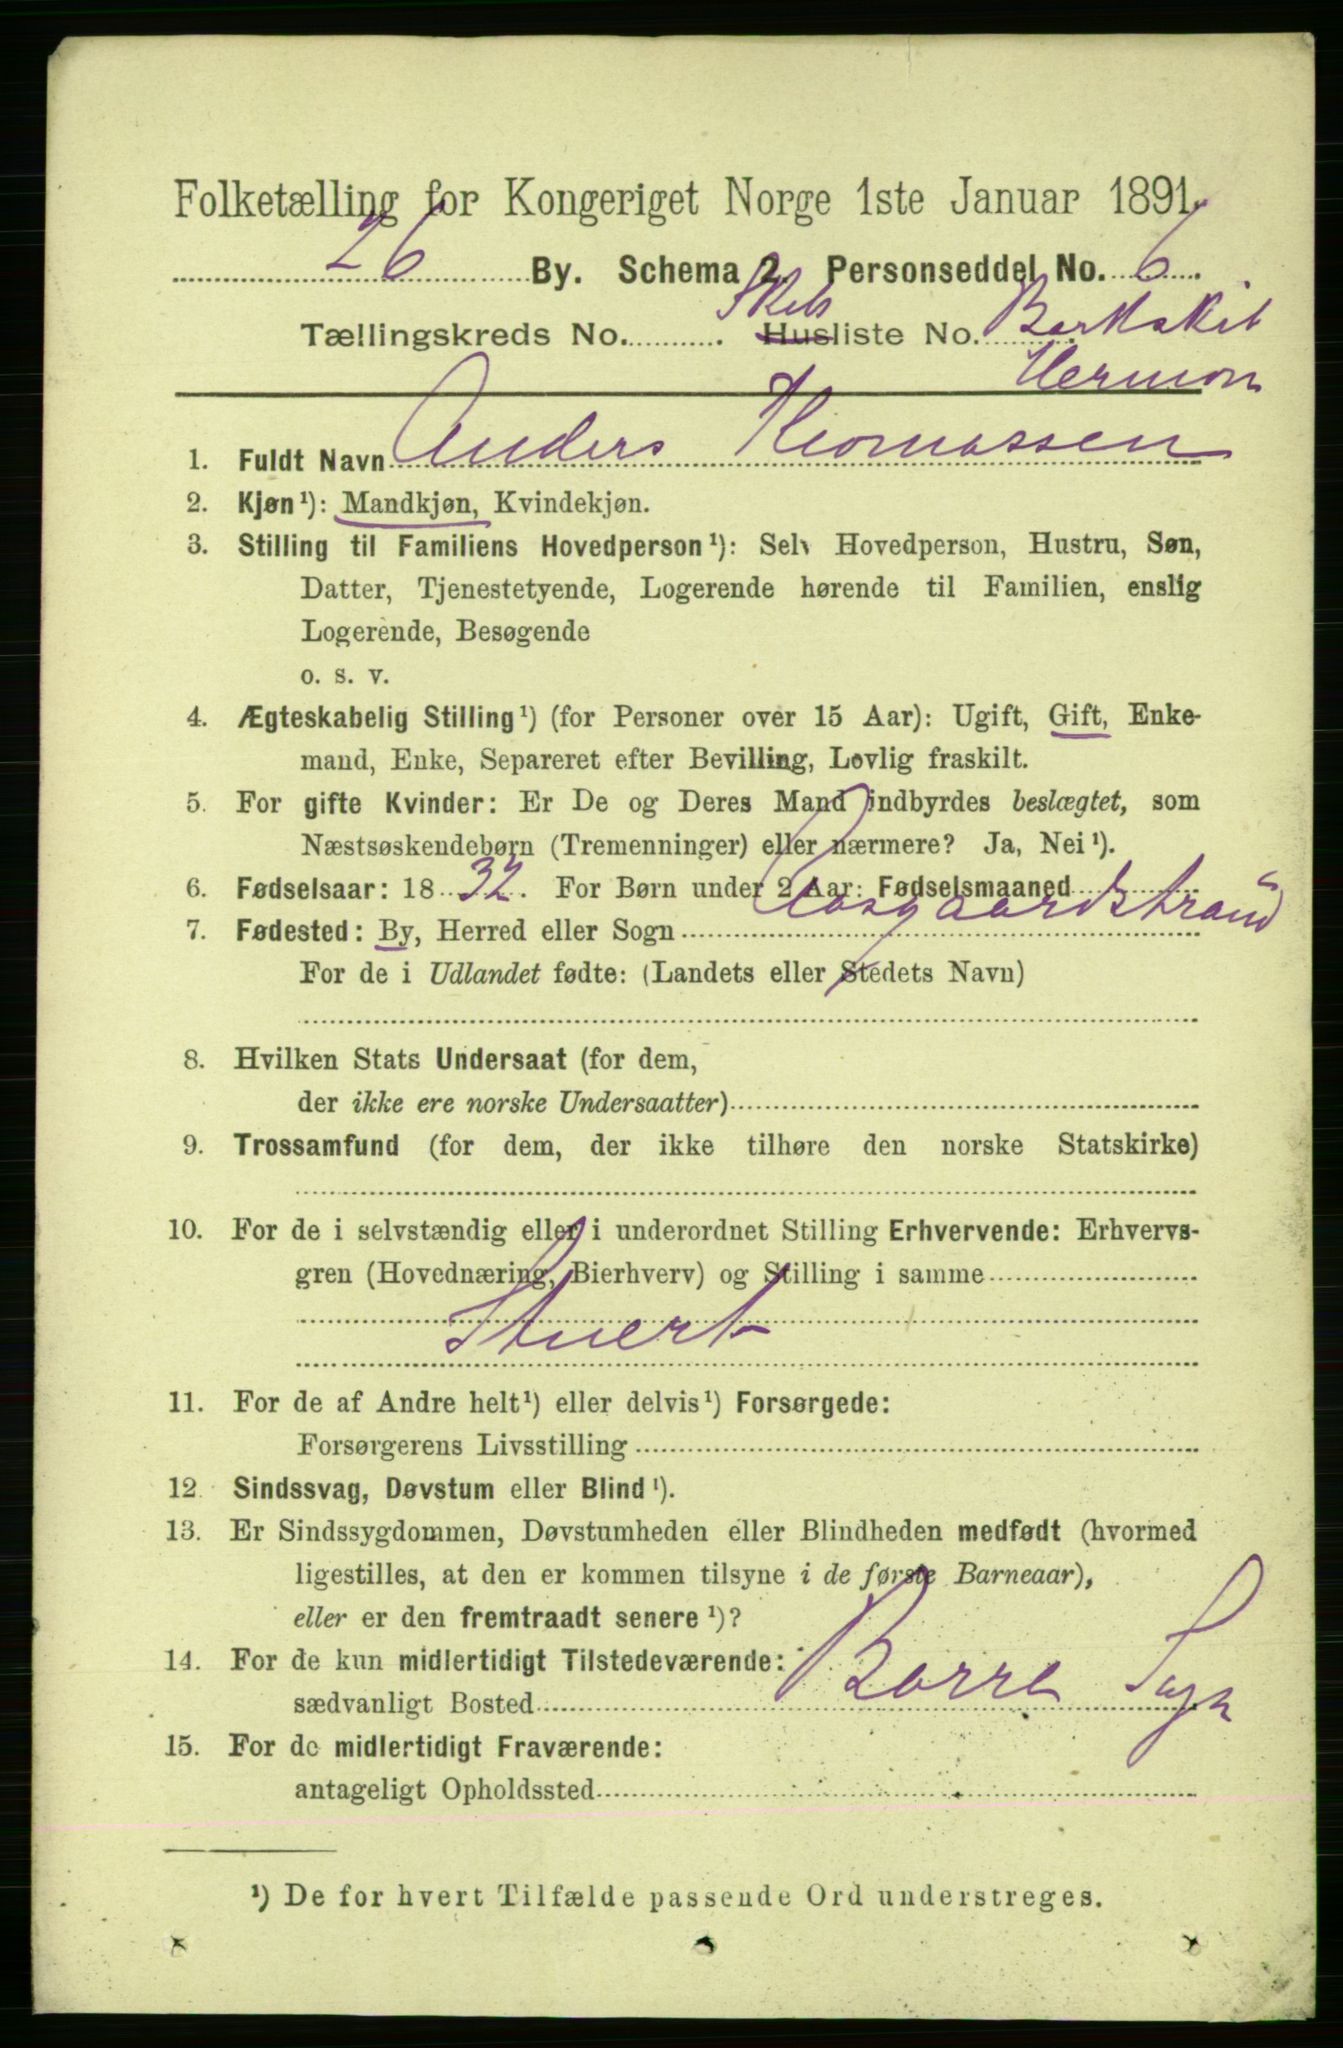 Folketælling for Kongeriget Norge 1ste Januar 1891.
26 By. Schema 2. Personseddel No. 6.
Tællingskreds No. Skibs Husliste No. Barkskib
Hermon
1. Fuldt Navn Anders Thomassen
2. Kjøn¹): Mandkjøn, Kvindekjøn.
3. Stilling til Familiens Hovedperson¹): Selv Hovedperson, Hustru, Søn,
Datter, Tjenestetyende, Logerende hørende til Familien, enslig
Logerende, Besøgende
o. s. v.
4. Ægteskabelig Stilling¹) (for Personer over 15 Aar): Ugift, Gift, Enke-
mand, Enke, Separeret efter Bevilling, Lovlig fraskilt.
5. For gifte Kvinder: Er De og Deres Mand indbyrdes beslægtet, som
Næstsøskendebørn (Tremenninger) eller nærmere? Ja, Nei¹).
6. Fødselsaar: 1832. For Børn under 2 Aar: Fødselsmaaned
7. Fødested: By, Herred eller Sogn Aasgaardstrand
For de i Udlandet fødte: (Landets eller Stedets Navn)
8. Hvilken Stats Undersaat (for dem,
der ikke ere norske Undersaatter)
9. Trossamfund (for dem, der ikke tilhøre den norske Statskirke)
10. For de i selvstændig eller i underordnet Stilling Erhvervende: Erhvervs-
gren (Hovednæring, Bierhverv) og Stilling i samme
Stuert
11. For de af Andre helt¹) eller delvis¹) Forsørgede:
Forsørgerens Livsstilling
12. Sindssvag, Døvstum eller Blind¹).
13. Er Sindssygdommen, Døvstumheden eller Blindheden medfødt (hvormed
ligestilles, at den er kommen tilsyne i de første Barneaar),
eller er den fremtraadt senere¹)?
14. For de kun midlertidigt Tilstedeværende:
sædvanligt Bosted Borre Sogn
15. For de midlertidigt Fraværende:
antageligt Opholdssted
¹) De for hvert Tilfælde passende Ord understreges.